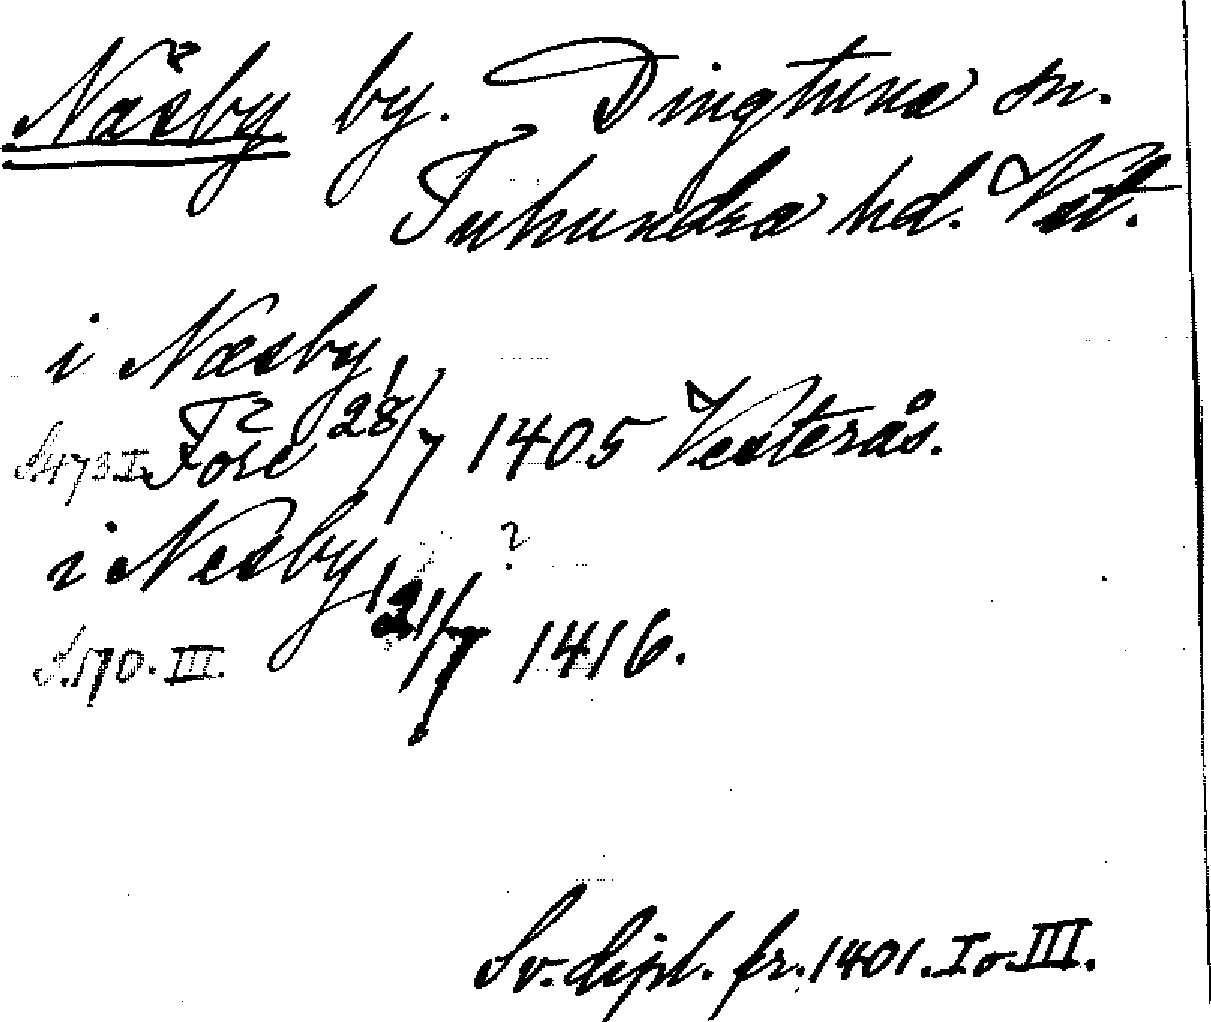 Näsby by. Dingtuna sn.
Tuhundra hd. Vst.
i Næsby
S.473.I. Fore 28/7 1405 Vesterås.
i Nesby ?
S.170.III. 21/7 1416.
Sv. dipl. fr. 1401. I o. III.